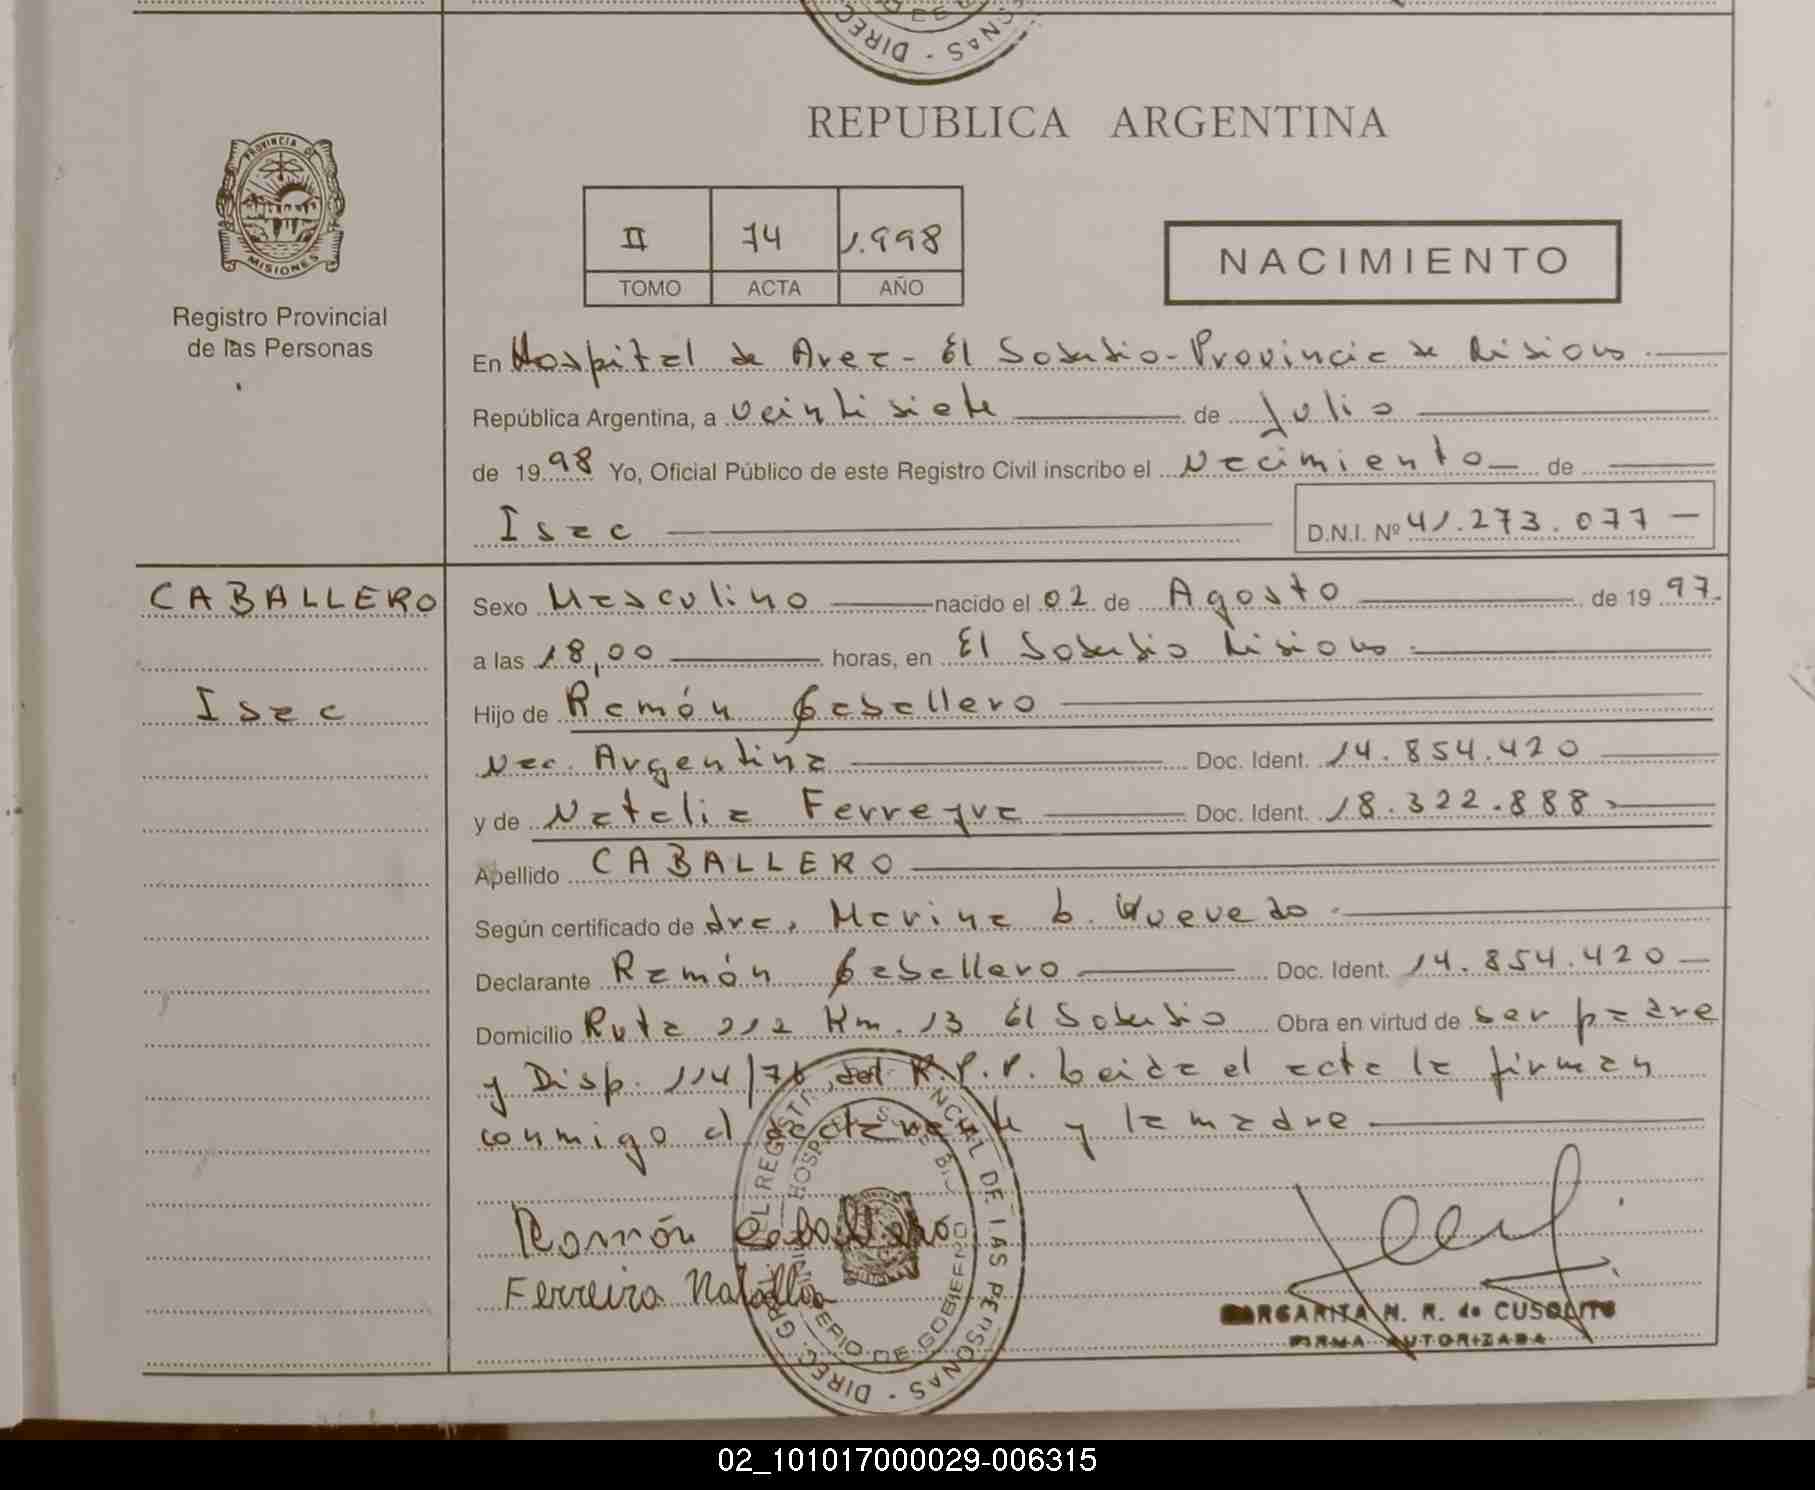 REPUBLICA ARGENTINA
PROVINCIA DE
MISIONES
Registro Provincial
de las Personas
II 74 1.998
TOMO ACTA AÑO
NACIMIENTO
En Hospital de Area - El Soberbio - Provincia de Misiones
República Argentina, a veintisiete de Julio
de 1998 Yo, Oficial Público de este Registro Civil inscribo el Nacimiento de
Isac D.N.I. Nº 41.273.077
CABALLERO
Isac
Sexo Masculino nacido el 02 de Agosto de 1997.
a las 18,00 horas, en El Soberbio Misiones
Hijo de Ramón Caballero
Nac. Argentina Doc. Ident. 14.854.420
y de Natalia Ferreyra Doc. Ident. 18.322.888
Apellido CABALLERO
Según certificado de dra, Marina b.
Declarante Ramón Caballero Doc. Ident. 14.854.420
Domicilio Ruta 212 Km. 13 El Soberbio Obra en virtud de ser padre
y Disp. 114/76 del R.P.P. Leida el acta la firman
conmigo el declarante y la madre
Ramón Caballero
Ferreira Natallia
MARGARITA N. R. de CUSOLITO
FIRMA AUTORIZADA
02_101017000029-006315